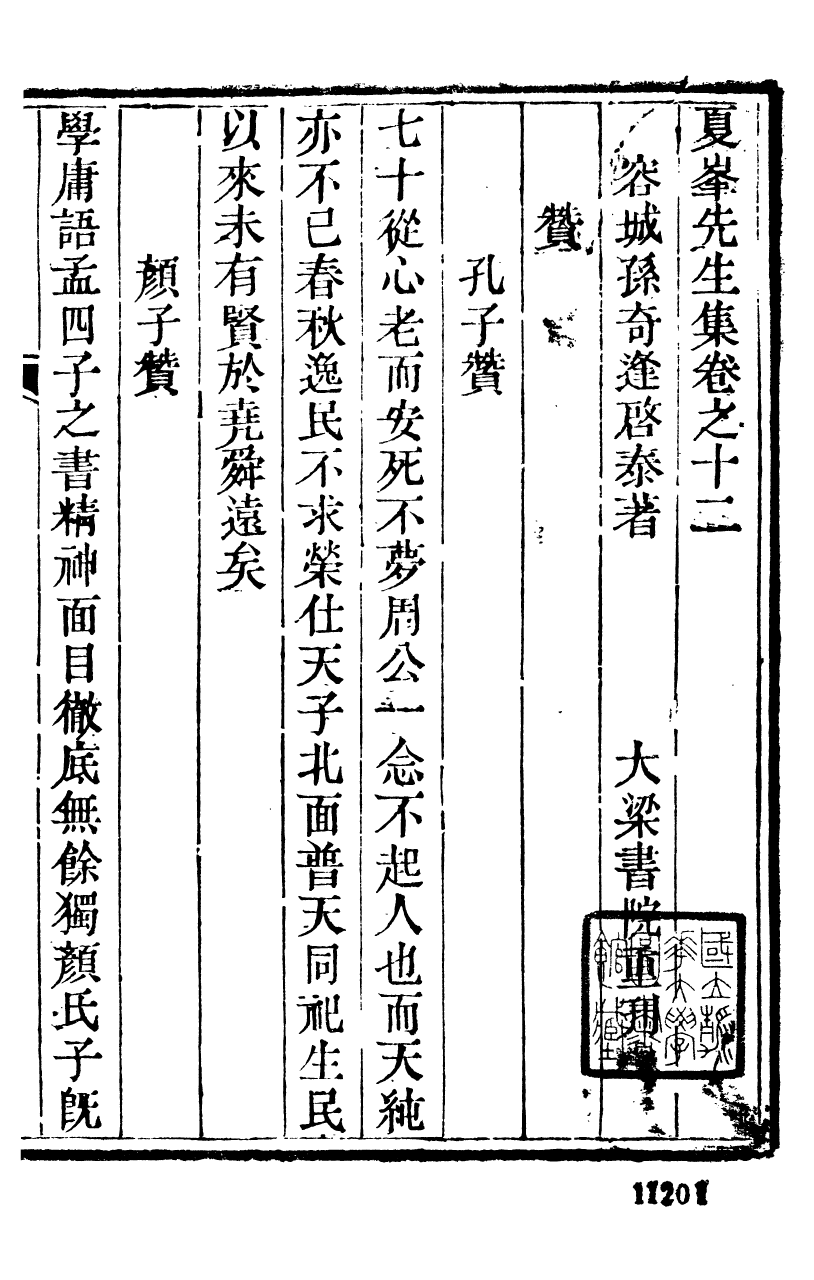 夏峯先生集卷之十二
容城孫奇逢啓泰著　大梁書院重刋
贊
孔子贊
七十從心老而安死不夢周公一念不起人也而天純
亦不已春秋逸民不求榮仕天子北面普天同祀生民
以來未有賢於堯舜遠矣
顏子贊
學庸語孟四子之書精神面目徹底無餘獨顏氏子旣
國立清華大學圖書館藏
11201